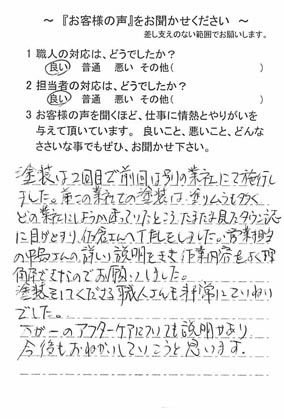 ～『お客様の声』をお聞かせください～
差し支えのない範囲でお願いします。
1 職人の対応は、どうでしたか？
良い 普通 悪い その他( )
2 担当者の対応は、どうでしたか？
良い 普通 悪い その他( )
3 お客様の声を聞くほど、仕事に情熱とやりがいを
与えて頂いています。良いこと、悪いこと、どんな
ささいな事でもぜひ、お聞かせ下さい。
塗装は2回目で前回は別の業社にて施行し
ました。前の業社での塗装は塗りムラも多く
どの業社にしようか迷っていたところ、たまたま見たタウン誌
に目がとまり、さんへTELをしました。営業担当
のさんの詳しい説明をきき作業内容をよく理
解できたのでお願いしました。
塗装をしてくださる職人さんも非常にていねい
でした。
万が一のアフターケアについても説明があり
今後もおねがいしていこうと思います。